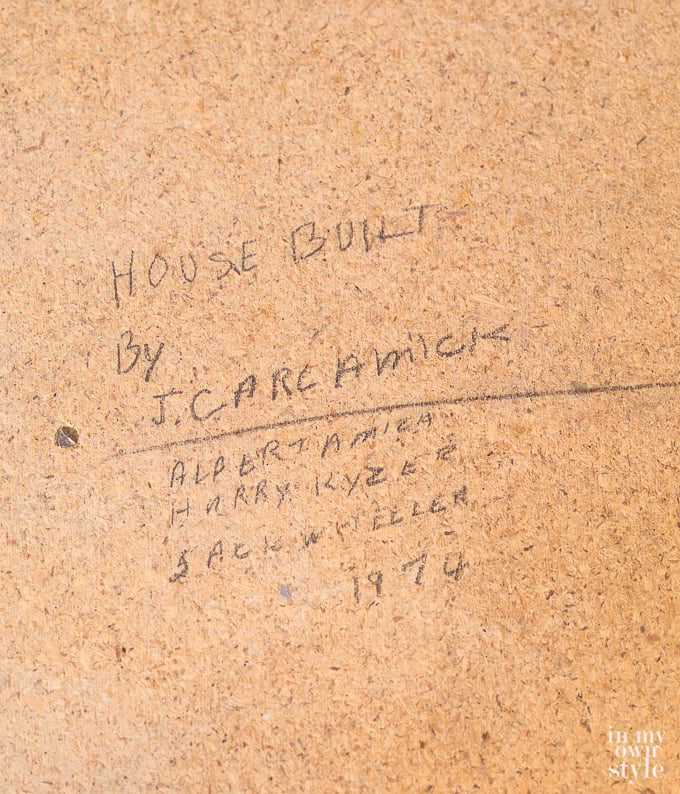 HOUSE BUILT
By
J. CARL AMICK
ALBERT AMICK
HARRY KYZER
JACK WHEELER
1974
in my
own
style